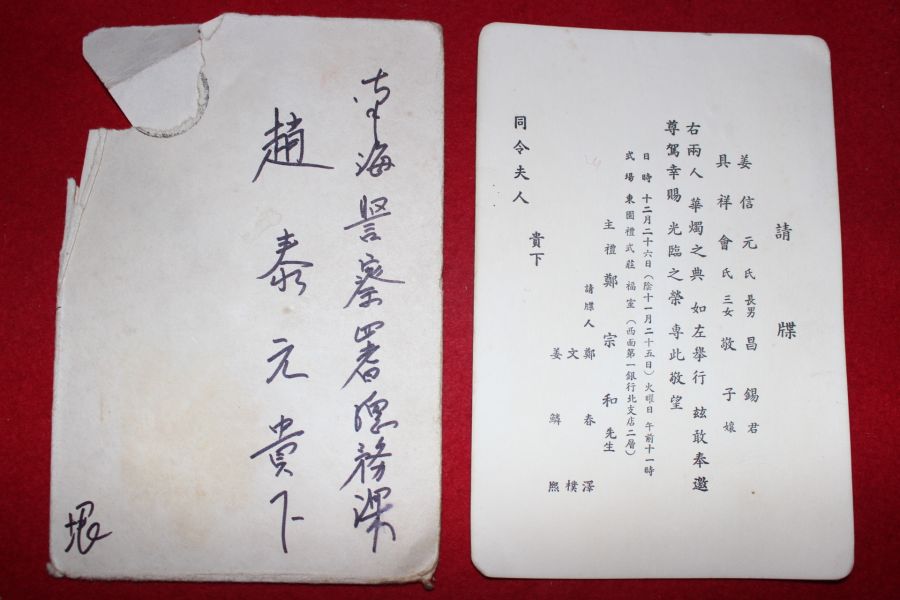 南海警察署總務課
趙泰元貴下
請牒
姜信元氏 長男 昌錫君
具祥會氏 三女 敬子孃
右兩人 華燭之典 如左擧行 玆敢奉邀
尊駕幸賜 光臨之榮 專此敬望
日時 十二月二十六日(陰十一月二十五日)火曜日 午前十一時
式場 東園禮式莊 福室 (西面第一銀行北支店二層)
主禮 鄭宗和 先生
請牒人 鄭春澤
文樸
姜鱗熙
同令夫人 貴下